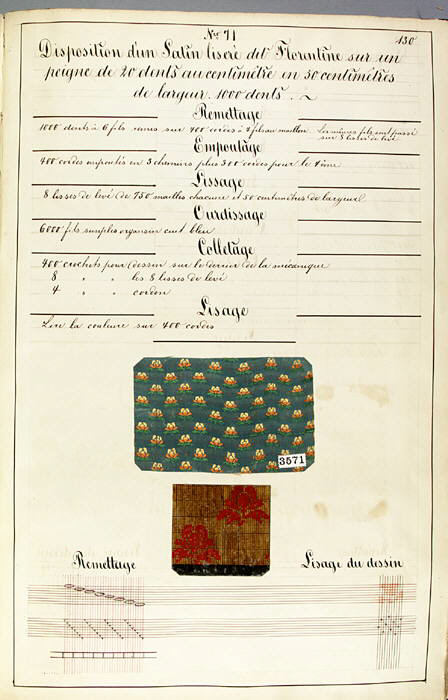 Nº 71
130
Disposition d'un Satin liseré dit Florentine sur un
peigne de 20 dents au centimètre en 50 centimètres
de largeur. 1000 dents.
Remettage
1000 dents à 6 fils remis sur 400 cordes à fils au maillon. Les mêmes fils sont passé
sur 8 lisses de levé
Empoutage
400 cordes empoutés en 3 chemins plus 300 cordes pour le 4ème
Lissage
8 lisses de levé de 750 mailles chacune et 50 centimètres de largeur
Ourdissage
6000 fils simples organsin cuit bleu
Colletage
400 crochets pour dessin sur le derrier de la mécanique
8 " " les 8 lisses de levé
4 " " cordon
Lisage
Lire la couleure sur 400 cordes
3571
Remettage
Lisage du dessin